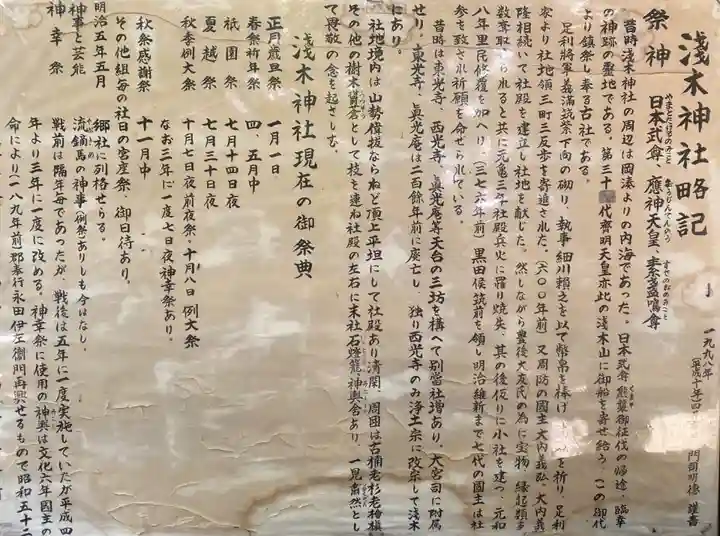 淺木神社略記
一九九八年
(平成十年)四
門司明德 謹書
祭神 日本武尊、應神天皇、素盞嗚尊
やまとたけるのみこと おうじんてんのう すさのおのみこと
昔時浅木神社の周辺は岡湊よりの内海であった。日本武尊熊襲御征伐の帰途、臨幸
の神跡の靈地である。第三十 代齊明天皇亦此の浅木山に御船を寄せ給う、この御代
より鎮祭し奉る古社である。
足利將軍義満筑紫下向の砌り、執事細川頼之を以て幣帛を捧げ を祈り、足利
家より社地領三町三反歩を寄進された。(六〇〇年前)又周防の國主大内義弘、大内義
隆相続いて社殿を建立し社地を献じた。然しながら豊後大友氏の為に宝物、縁起類多
数奪取せられると共に元亀三年社殿兵火に罹り焼失、其の後仮りに小社を建つ、元和
八年里民修覆を加へり、(三七六年前)黒田侯筑前を領し明治維新まで七代の國主は社
参を致され祈願を命ぜられている。
昔時は東光寺、西光寺、眞光庵等天台の三坊を構へて別當社増あり、大宮司に附属
せり。東光寺、眞光庵は二百餘年前に廃亡し、独り西光寺のみ浄土宗に改宗して浅木
にあり。
社地境内は山勢偉拔ならねど頂上平坦にして社殿あり清閑、周囲は古楠老杉老檜椎
その他の樹木鬱蒼として枝を連ね社殿の左右に末社石燈籠、神輿舎あり、一見肅然とし
て畏敬の念を起さしむ。
淺木神社現在の御祭典
正月歳旦祭 一月一日
春祭祈年祭 四、五月中
祇園祭 七月十四日夜
夏越祭 七月三十日夜
秋季例大祭 十月七日夜前夜祭・十月八日例大祭
なお三年に一度七日夜神幸祭あり。
秋祭感謝祭 十一月中
その他組毎の社日の宮座祭、御日待あり。
明治五年五月 郷社に列格せらる。
神事と芸能 流鏑馬の神事(例祭)ありしも今はなし。
神幸祭 戦前は隔年毎であったが、戦後は五年に一度実施していたが平成四
年より三年に一度に改める。神幸祭に使用の神輿は文化六年國主の
命により(一八九年前)郡奉行永田伊左衛門再興せるもので昭和五十二